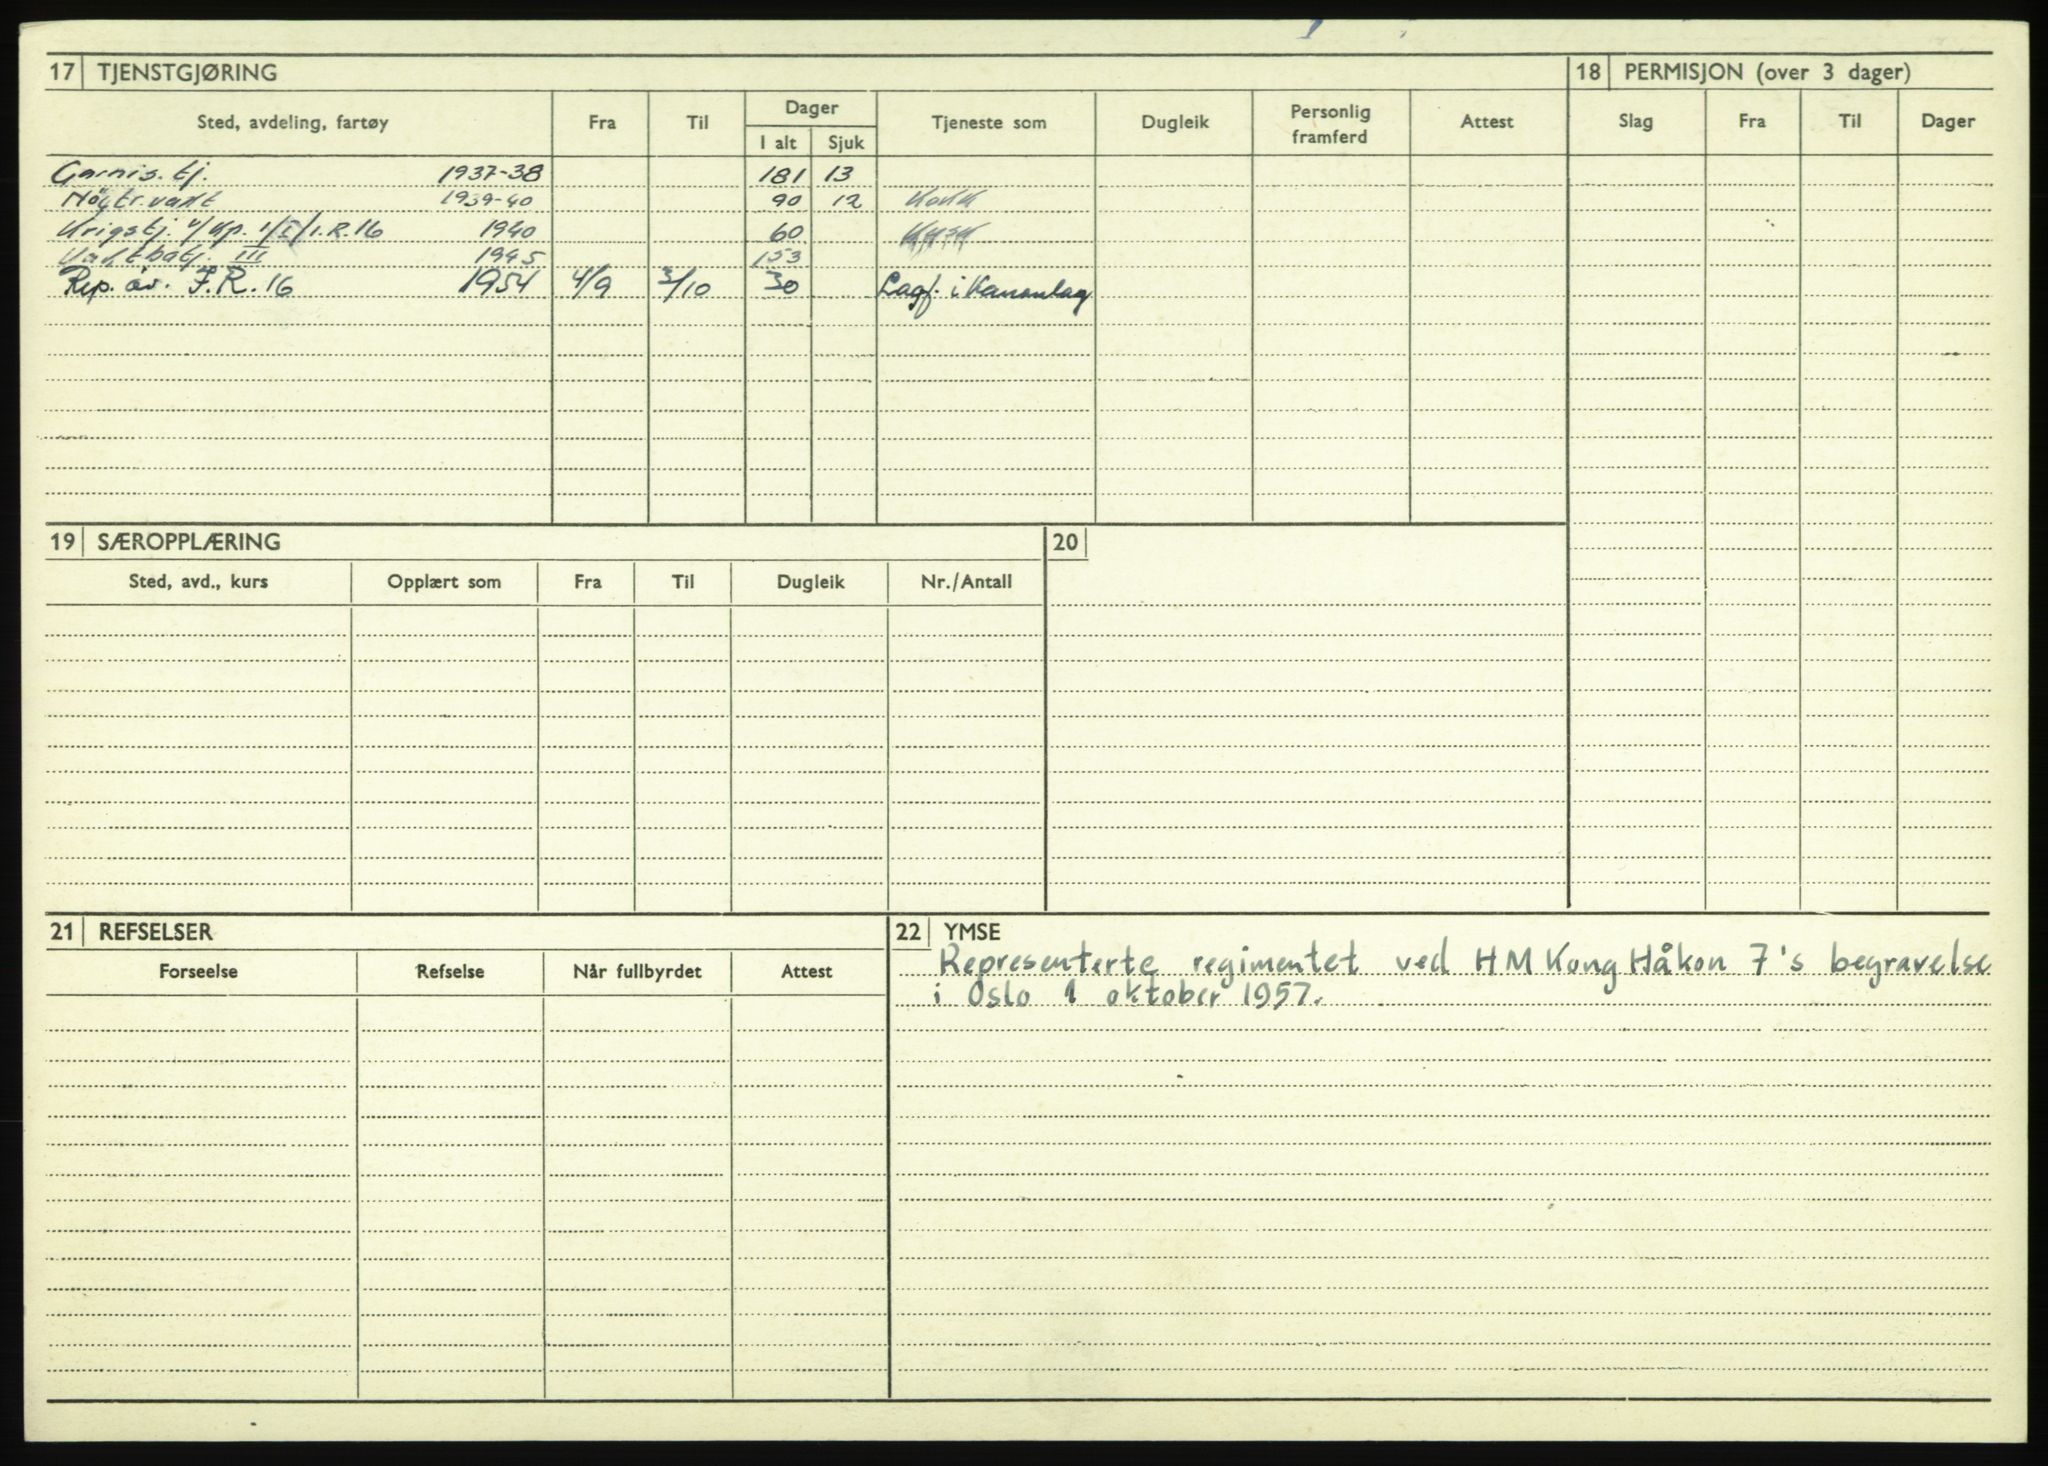 17 TJENSTGJØRING
Sted, avdeling, fartøy Fra Til Dager I alt Sjuk Tjeneste som Dugleik Personlig framferd Attest
Garnis. tj. 1937-38 181 13
Nöytr. vakt 1939-40 90 12
Krigstj. 4/Kp. I/I.R.16 1940 60
Vaktbatj. III 1945 153
Rep. öv. I.R. 16 1954 4/9 3/10 30 Lagf. i Kanonlag
18 PERMISJON (over 3 dager)
Slag Fra Til Dager
19 SÆROPPLÆRING
Sted, avd., kurs Opplært som Fra Til Dugleik Nr./Antall
20
21 REFSELSER
Forseelse Refselse Når fullbyrdet Attest
22 YMSE
Representerte regimentet ved HM Kong Håkon 7's begravelse
i Oslo 1 oktober 1957.